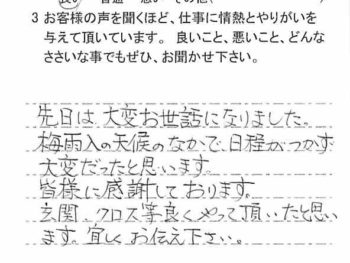 3 お客様の声を聞くほど、仕事に情熱とやりがいを
与えて頂いています。 良いこと、悪いこと、どんな
ささいな事でもぜひ、お聞かせ下さい。
先日は大変お世話になりました。
梅雨入の天候のなかで、日程がつかず
大変だったと思います。
皆様に感謝しております。
玄関、クロス等良くやって頂いたと思い
ます。宜しくお伝え下さい。